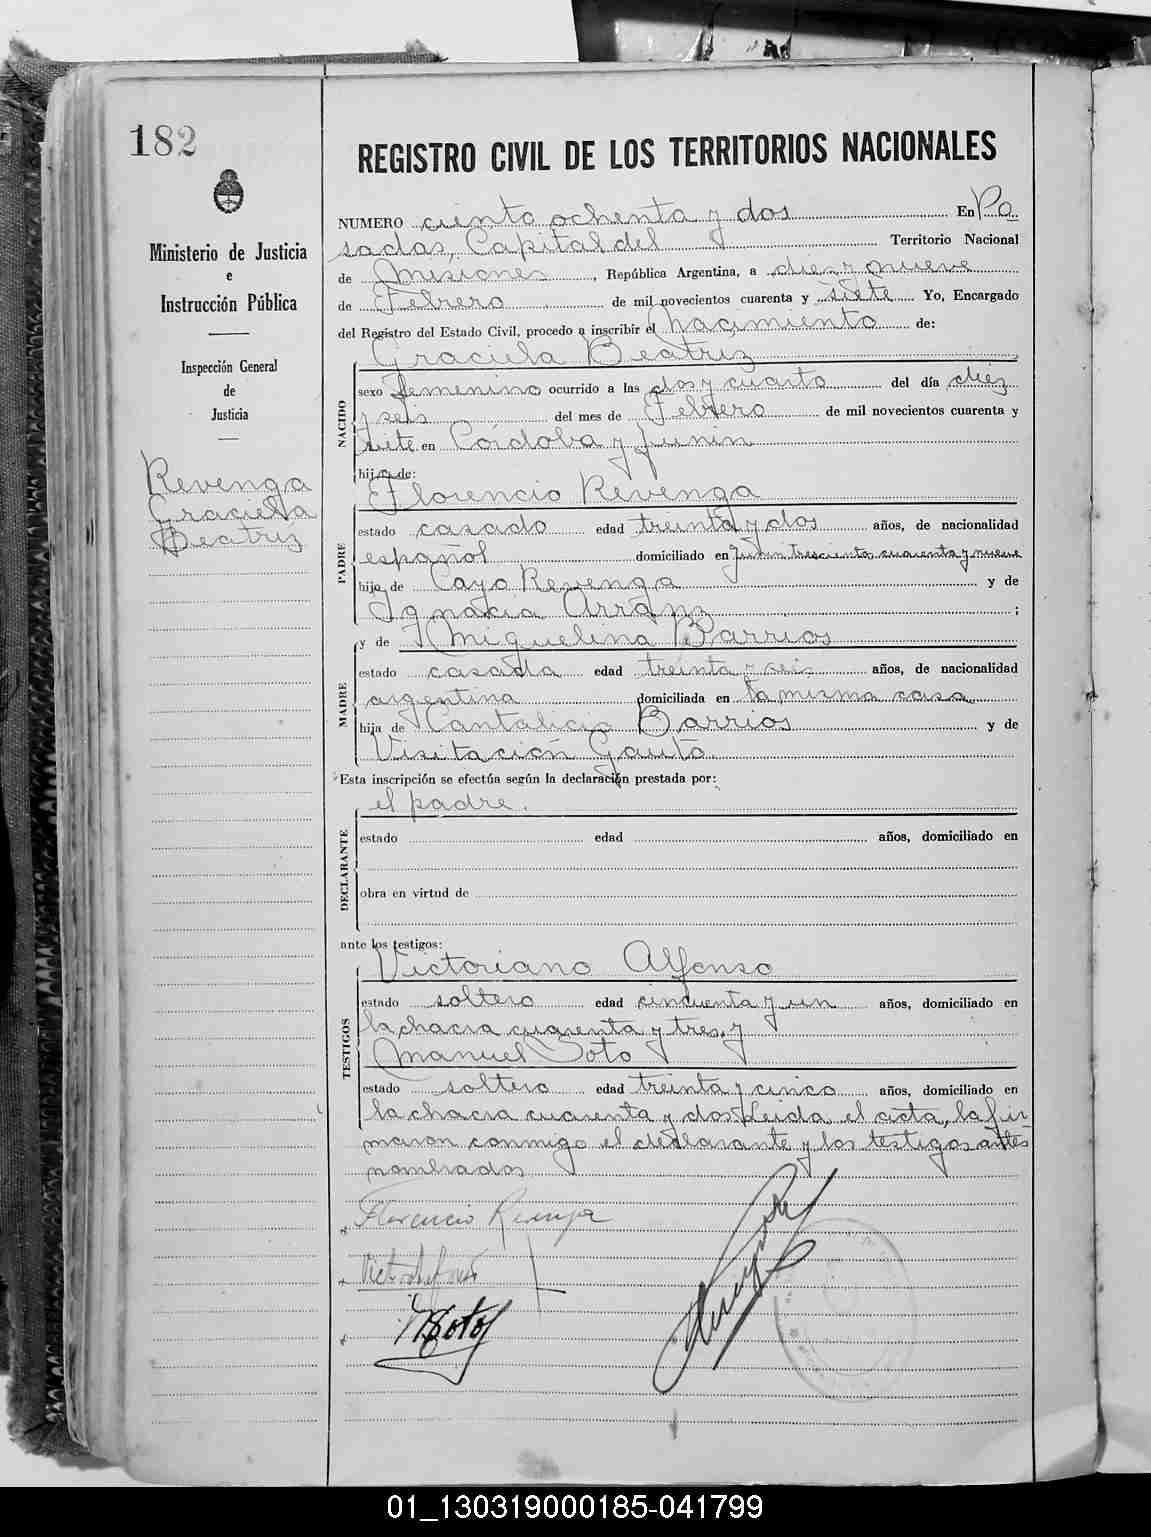 182
Ministerio de Justicia
e
Instrucción Pública
Inspección General
de
Justicia
Revenga
Graciela
Beatriz
REGISTRO CIVIL DE LOS TERRITORIOS NACIONALES
NUMERO ciento ochenta y dos En Po
sadas, Capital del Territorio Nacional
de Misiones, República Argentina, a diez y nueve
de Febrero de mil novecientos cuarenta y siete Yo, Encargado
del Registro del Estado Civil, procedo a inscribir el nacimiento de:
Graciela Beatriz
NACIDO
sexo femenino ocurrido a las dos y cuarto del día diez
y seis del mes de Febrero de mil novecientos cuarenta y
siete en Córdoba y Junin
hija de:
Florencio Revenga
PADRE
estado casado edad treinta y dos años, de nacionalidad
español domiciliado en Junin trescientos cuarenta y nueve
hijo de Cayo Revenga y de
Ignacia Arranz ;
y de Miguelina Barrios
MADRE
estado casada edad treinta y seis años, de nacionalidad
argentina domiciliada en la misma casa
hija de Cantalicio Barrios y de
Visitación Gauto
Esta inscripción se efectúa según la declaración prestada por:
el padre.
DECLARANTE
estado edad años, domiciliado en
obra en virtud de
ante los testigos:
Victoriano Alfonso
TESTIGOS
estado soltero edad cincuenta y un años, domiciliado en
la chacra cuarenta y tres, y
Manuel Soto
estado soltero edad treinta y cinco años, domiciliado en
la chacra cuarenta y dos. Leida el acta, la fir
maron conmigo el declarante y los testigos antes
nombrados
Florencio Revenga
NSoto
01_130319000185-041799